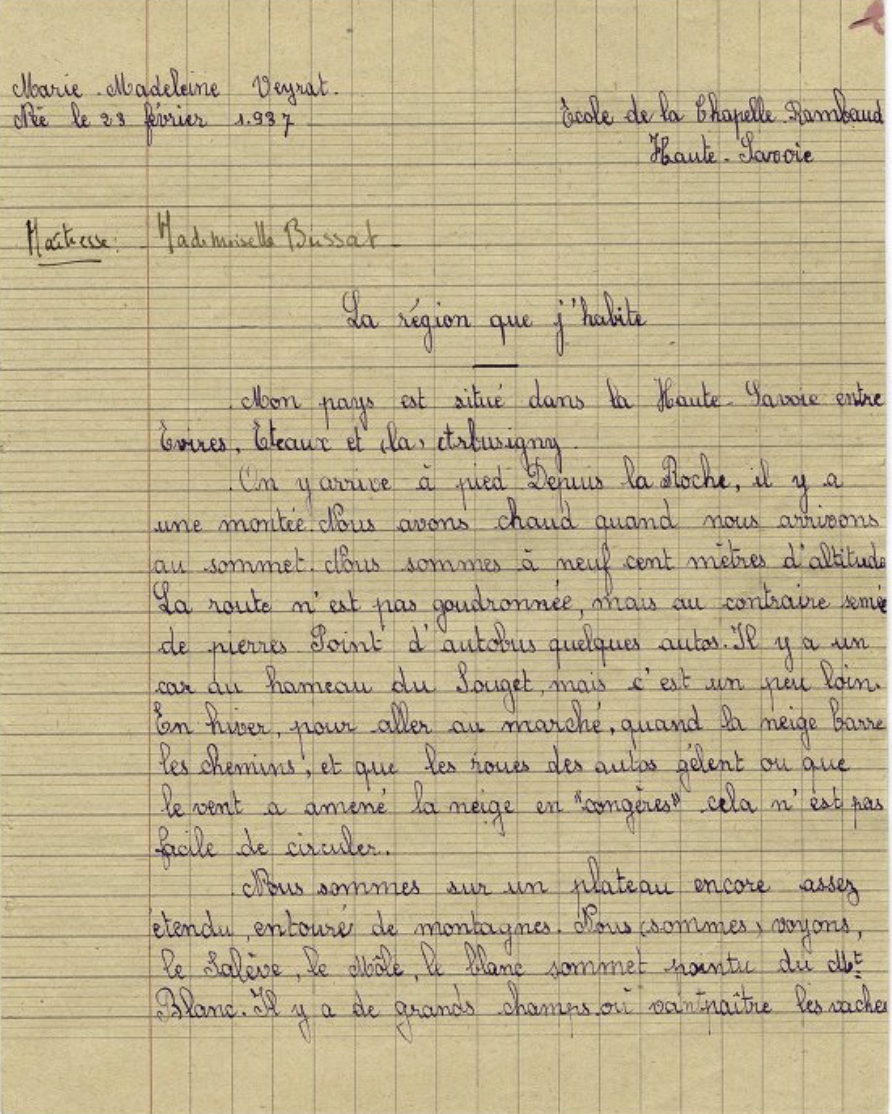 Marie-Madeleine Veyrat.
Née le 23 février 1.937
École de la Chapelle-Rambaud
Haute-Savoie
Maîtresse: Mademoiselle Bussat
La région que j'habite
Mon pays est situé dans la Haute-Savoie entre
Évires, Éteaux et (la) Arbusigny.
On y arrive à pied Depuis la Roche, il y a
une montée. Nous avons chaud quand nous arrivons
au sommet. Nous sommes à neuf cent mètres d'altitude
La route n'est pas goudronnée, mais au contraire semé
de pierres Point d'autobus quelques autos. Il y a un
car au hameau du Souget, mais c'est un peu loin.
En hiver, pour aller au marché, quand la neige barre
les chemins, et que les roues des autos gèlent ou que
le vent a amené la neige en "congères" cela n'est pas
facile de circuler.
Nous sommes sur un plateau encore assez
étendu, entouré de montagnes. Nous (sommes) voyons,
le Salève, le Môle, le blanc sommet pointu du Mt
Blanc. Il y a de grands champs où vont paître les vaches